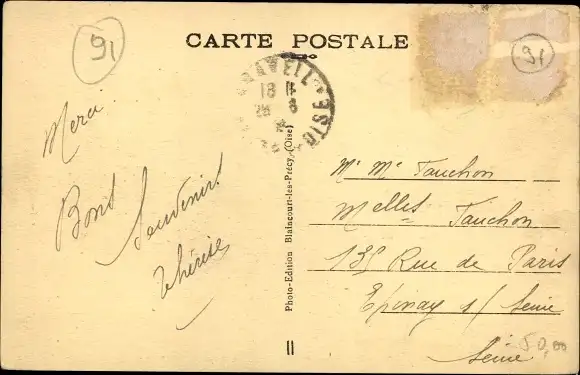 91
CARTE POSTALE
91
18 H
OISE
Merci
Bons
Souvenirs
Thérèse
Photo-Edition Blaincourt-les-Précy (Oise)
11
Mr Me Tauchon
Melles Tauchon
135 Rue de Paris
Epinay s/ Seine
Seine
50,00